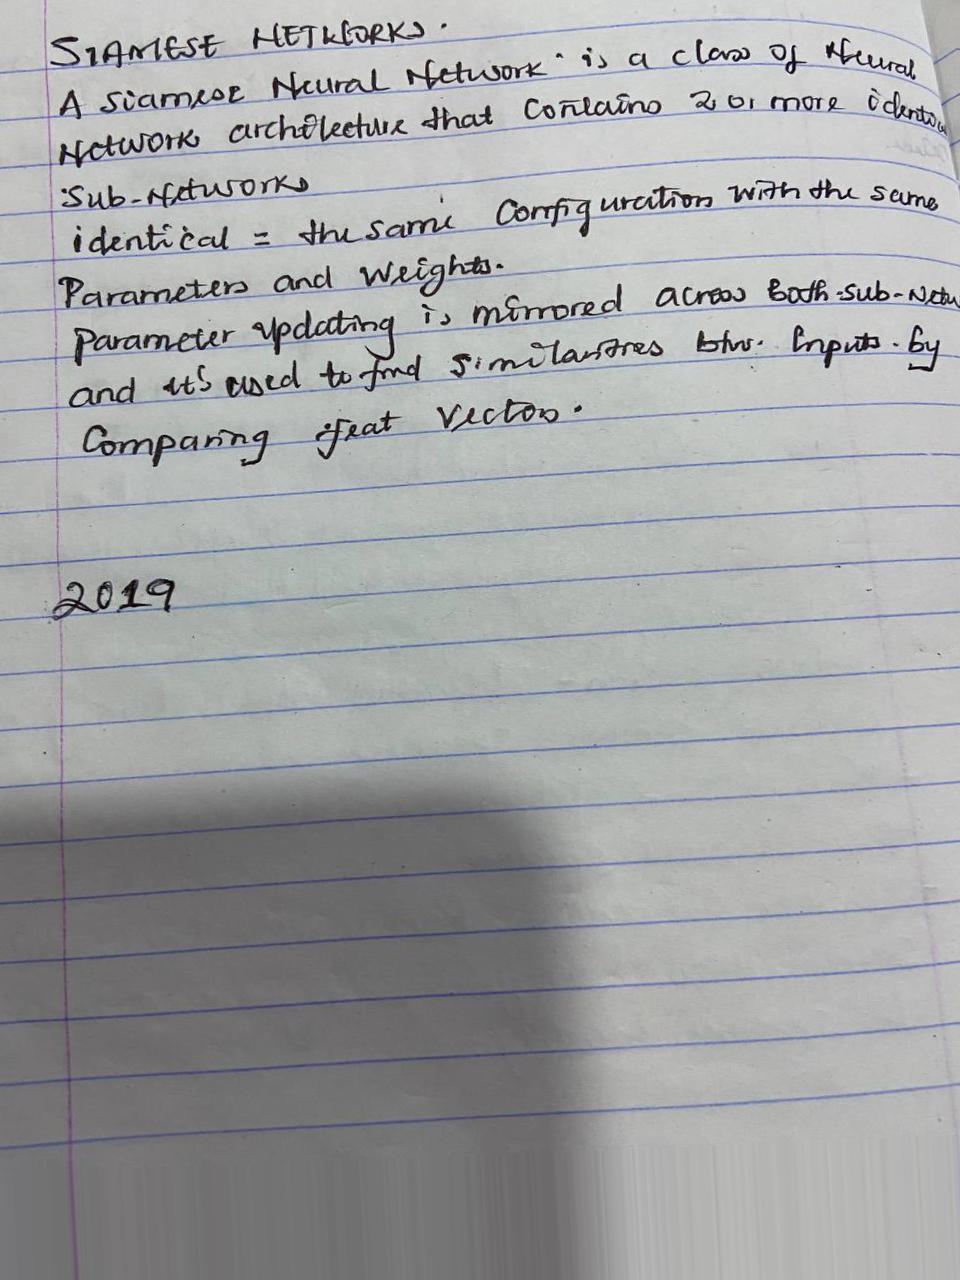 SIAMESE NETWORKS.
A siamese Neural Network is a class of Neural
Network architecture that Contains 2 or more identical
Sub-Networks
identical = the same Configuration with the same
Parameters and Weights.
Parameter updating is mirrored across Both sub-Netw
and it's used to find similarities btw. Inputs. by
Comparing feat Vectors.
2019